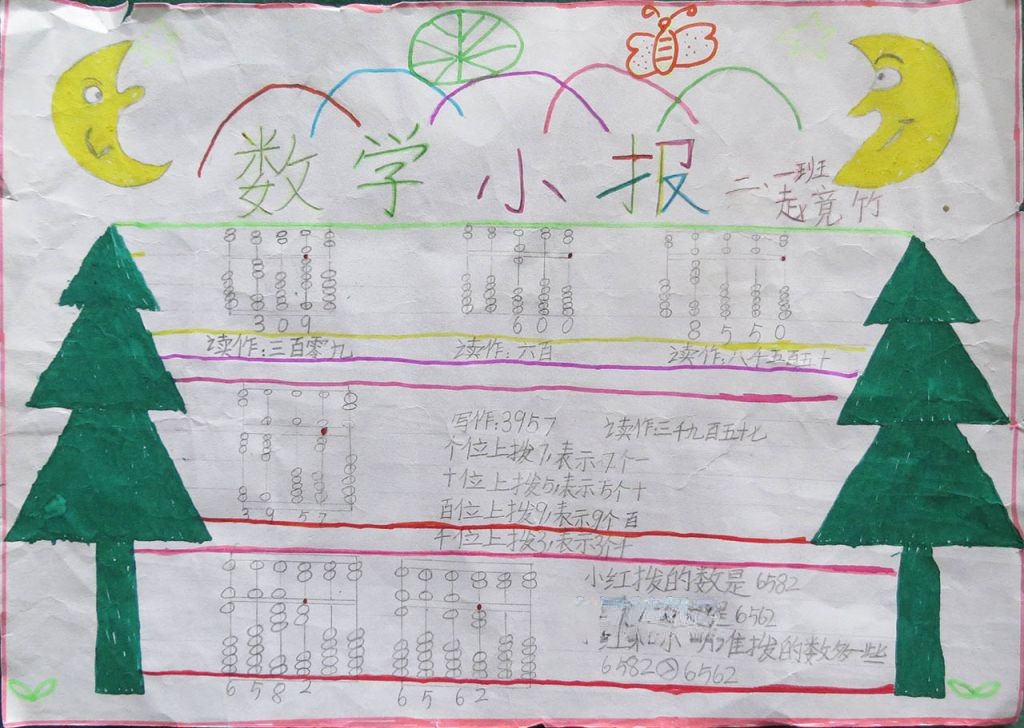 数学小报
二、一班
赵竟竹
309
600
8550
读作:三百零九
读作:六百
读作:八千五百五十
写作:3957
读作:三千九百五十七
个位上拨7,表示7个一
十位上拨5,表示5个十
百位上拨9,表示9个百
千位上拨3,表示3个千
3957
小红拨的数是6582
6562
红和小明谁拨的数多一些
6582>6562
6582
6562